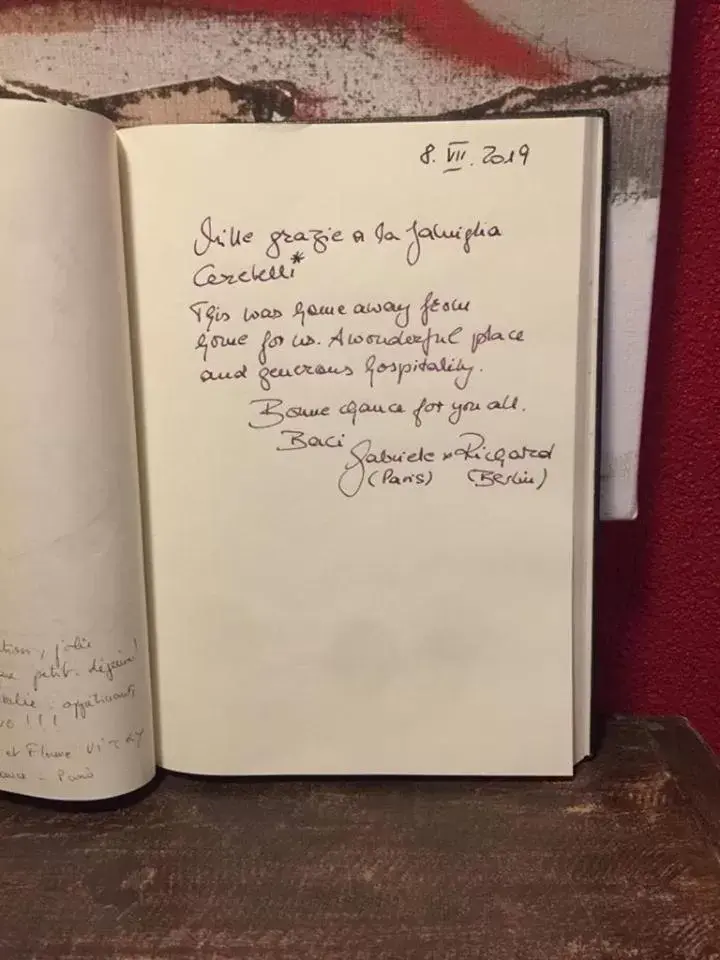 8. VII. 2019
Mille grazie a la famiglia
Cerbelli*
This was home away from
home for us. A wonderful place
and generous hospitality.
Bonne chance for you all.
Baci Gabriele + Richard
(Paris) (Berlin)
petit-déjeuner
!!!
et
Paris